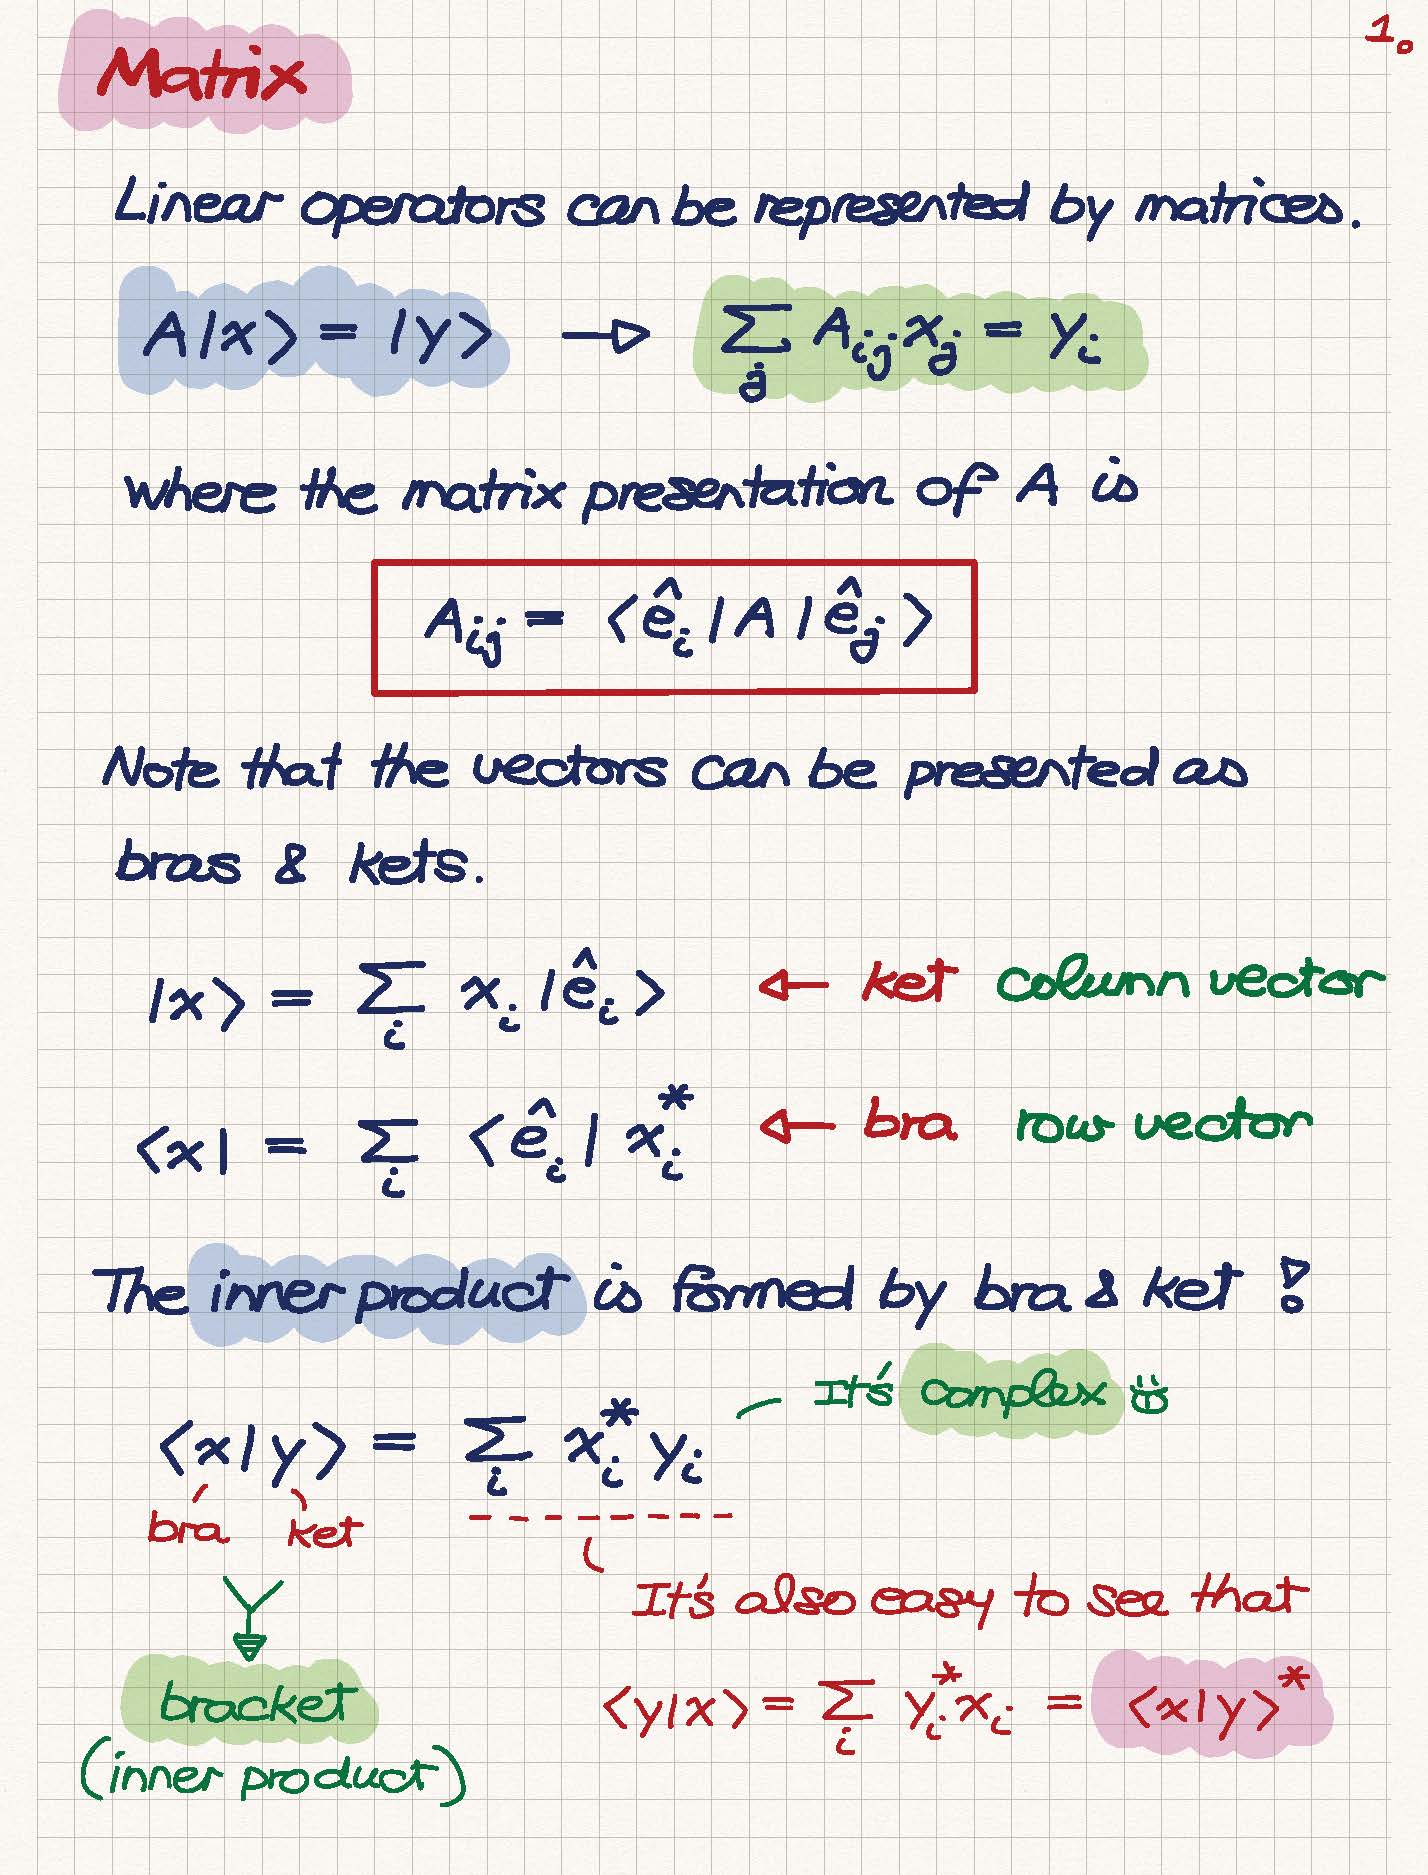 1.
Matrix
Linear operators can be represented by matrices.
A|x⟩ = |y⟩ → ∑_j A_ij x_j = y_i
where the matrix presentation of A is
A_ij = ⟨ê_i|A|ê_j⟩
Note that the vectors can be presented as
bras & kets.
|x⟩ = ∑_i x_i |ê_i⟩ ← ket column vector
⟨x| = ∑_i ⟨ê_i| x_i^* ← bra row vector
The inner product is formed by bra & ket !
It's complex
⟨x|y⟩ = ∑_i x_i^* y_i
bra ket
It's also easy to see that
⟨y|x⟩ = ∑_i y_i^* x_i = ⟨x|y⟩^*
bracket
(inner product)